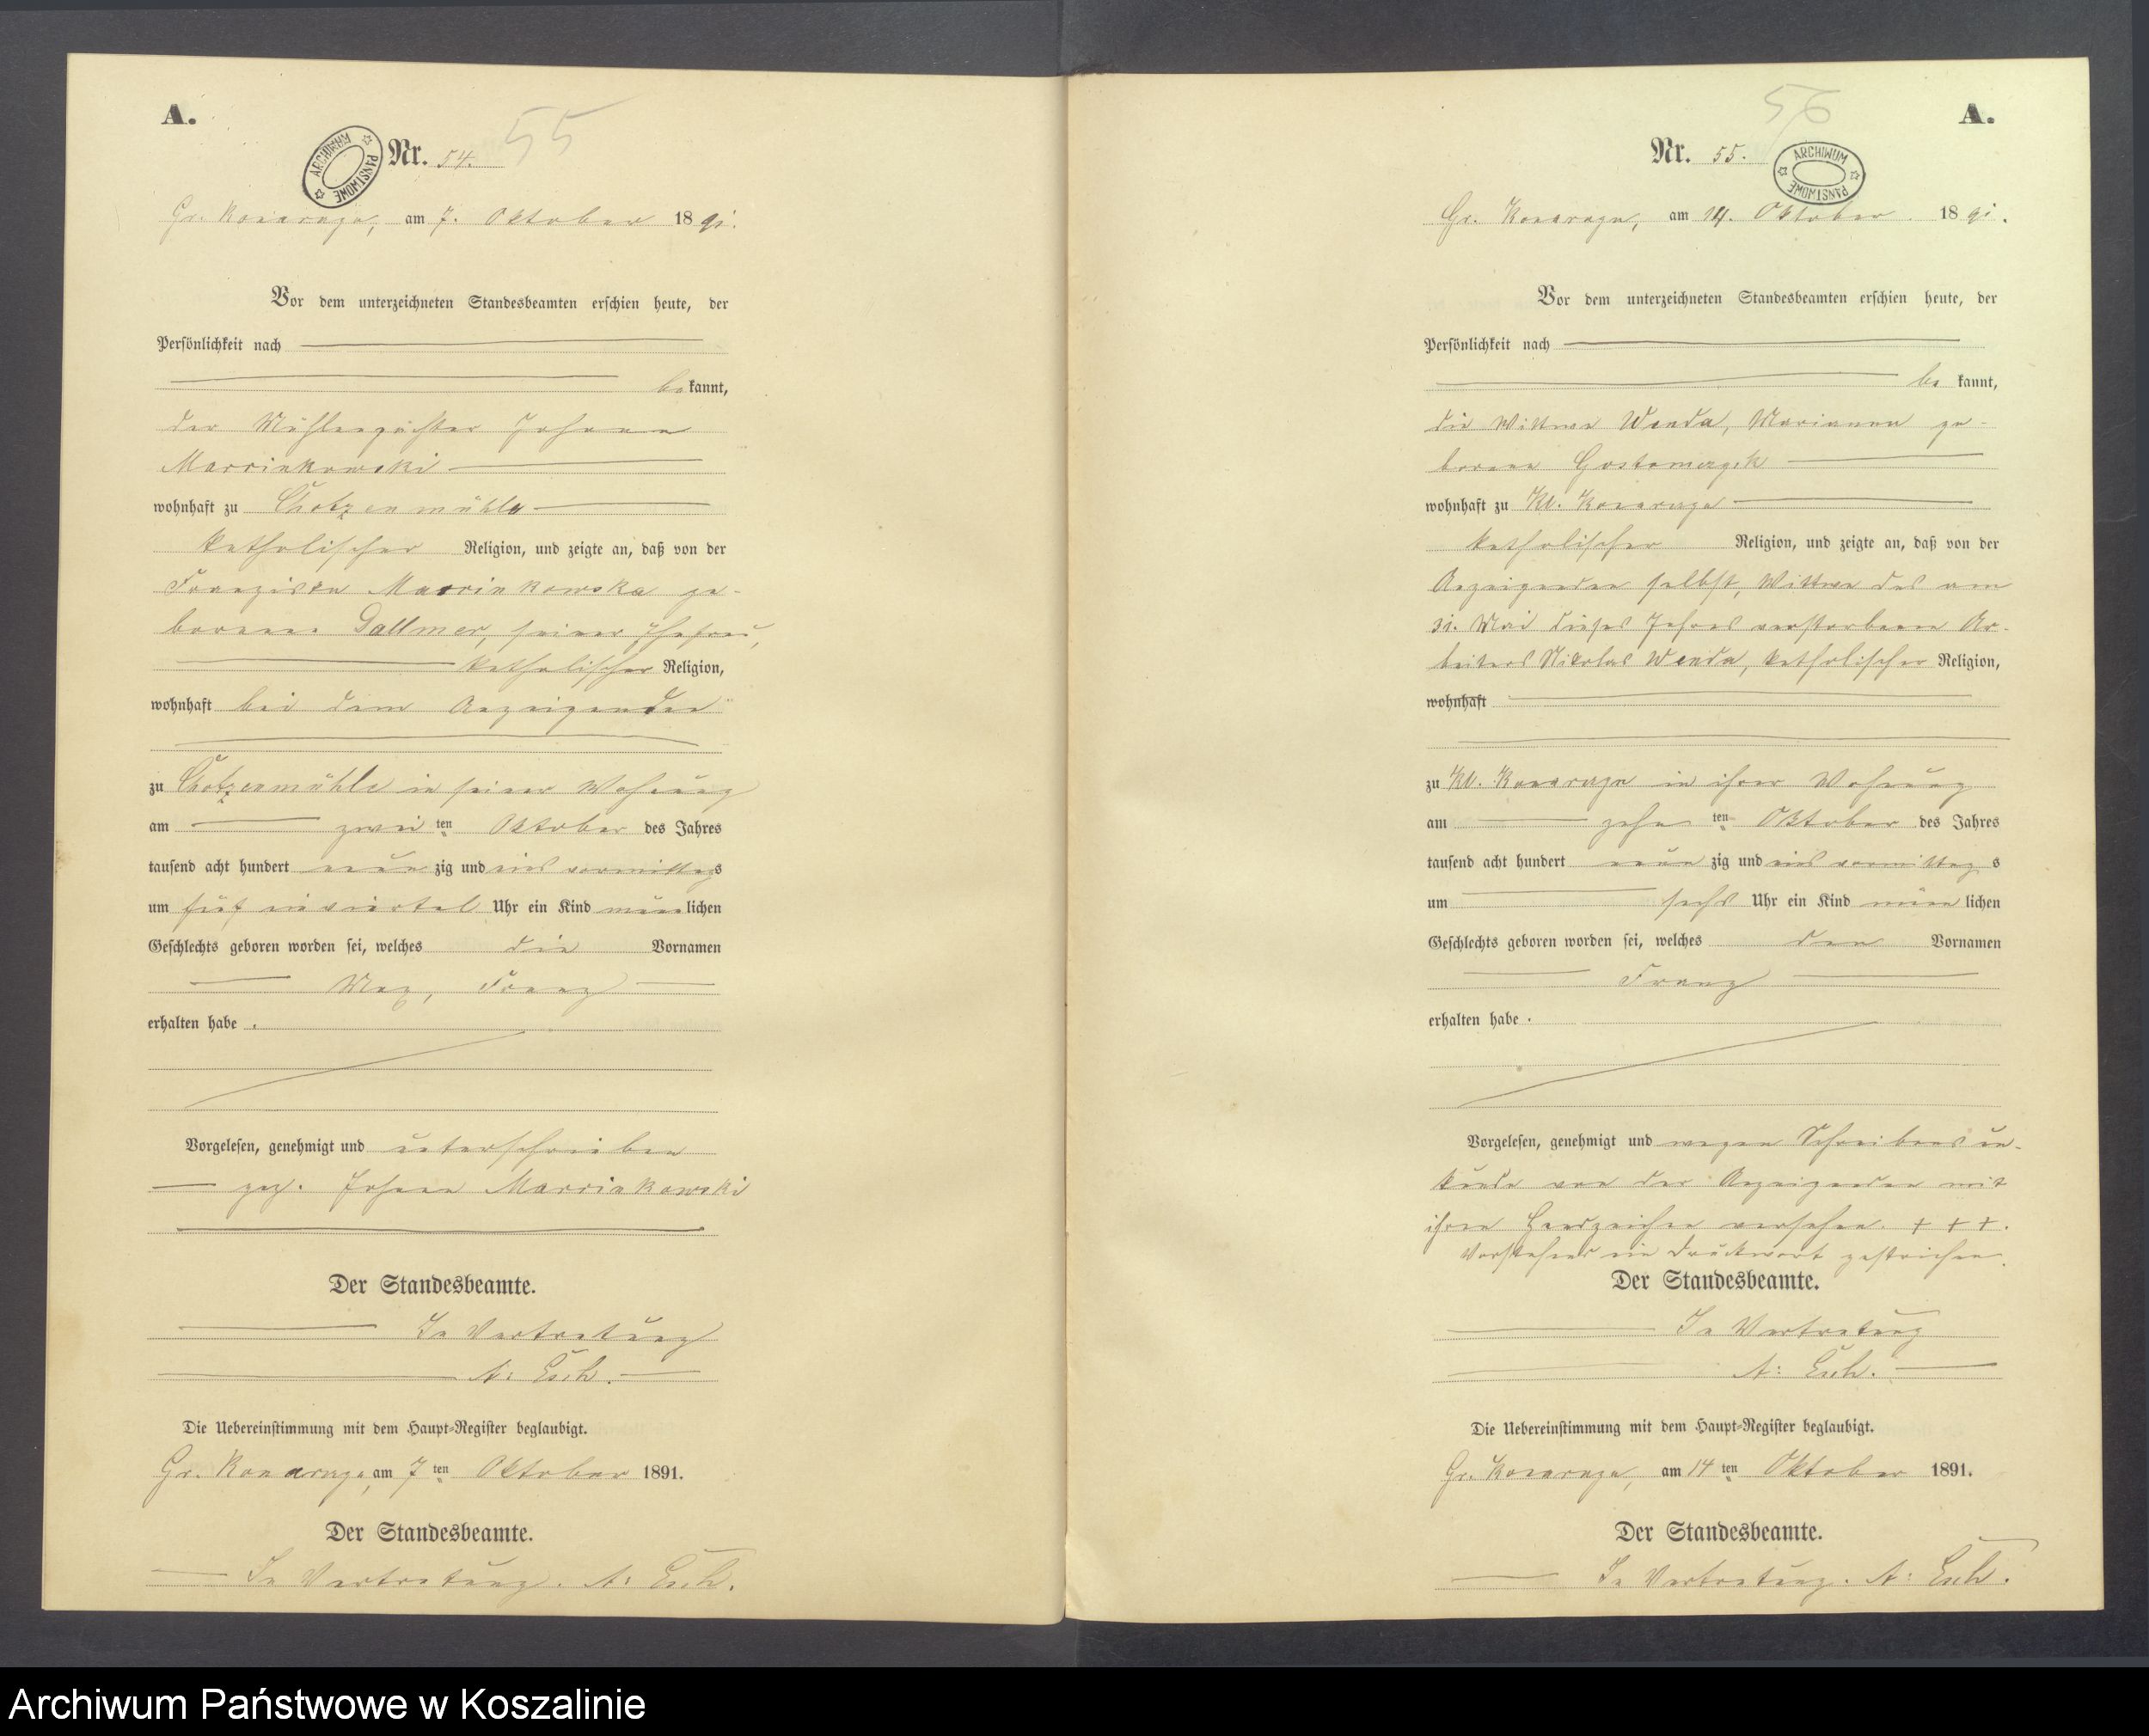 A.
55
ARCHIWUM PAŃSTWOWE
Nr. 54.
Gr. Konarczyn, am 7. Oktober 1891.
Vor dem unterzeichneten Standesbeamten erschien heute, der
Persönlichkeit nach
bekannt,
der Mühlenpächter Johann
Marcinkowski
wohnhaft zu Chotzenmühle
katholischer Religion, und zeigte an, daß von der
Franziska Marcinkowska ge-
borenen Dallmer, seiner Ehefrau,
katholischer Religion,
wohnhaft bei dem Anzeigenden
zu Chotzenmühle in seiner Wohnung
am zweiten Oktober des Jahres
tausend acht hundert neunzig und eins vormittags
um fünf einviertel Uhr ein Kind männlichen
Geschlechts geboren worden sei, welches die Vornamen
Max, Franz
erhalten habe.
Vorgelesen, genehmigt und unterschrieben
gez. Johann Marcinkowski
Der Standesbeamte.
In Vertretung
A: Esch.
Die Uebereinstimmung mit dem Haupt-Register beglaubigt.
Gr. Konarczyn, am 7ten Oktober 1891.
Der Standesbeamte.
In Vertretung. A: Esch.
56
A.
Nr. 55.
ARCHIWUM PAŃSTWOWE
Gr. Konarczyn, am 14. Oktober 1891.
Vor dem unterzeichneten Standesbeamten erschien heute, der
Persönlichkeit nach
bekannt,
die Wittwe Wenda, Marianna ge-
borene Gostomczyk
wohnhaft zu Kl. Konarczyn
katholischer Religion, und zeigte an, daß von der
Anzeigenden selbst, Wittwe des am
31. Mai dieses Jahres verstorbenen Ar-
beiters Nikolas Wenda, katholischer Religion,
wohnhaft
zu Kl. Konarczyn in ihrer Wohnung
am zehnten Oktober des Jahres
tausend acht hundert neunzig und eins vormittags
um sechs Uhr ein Kind männlichen
Geschlechts geboren worden sei, welches den Vornamen
Franz
erhalten habe.
Vorgelesen, genehmigt und wegen Schreibensun-
kunde von der Anzeigenden mit
ihren Handzeichen versehen. + + +.
Vorstehend ein Druckwort gestrichen.
Der Standesbeamte.
In Vertretung
A: Esch.
Die Uebereinstimmung mit dem Haupt-Register beglaubigt.
Gr. Konarczyn, am 14ten Oktober 1891.
Der Standesbeamte.
In Vertretung. A: Esch.
Archiwum Państwowe w Koszalinie